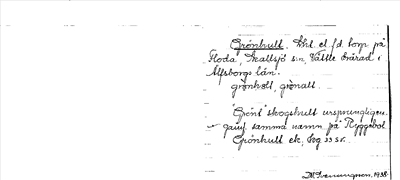 Grönhult. Lht. et f.d. torp på
Floda, Skallsjö s:n, Vättle härad i
Älfsborgs län.
grönhelt, grönalt.
'Grönt' skogshult ursprungligen
samma namn på Ryggebol
Grönhult ek. Seg 33 sr.
1938.